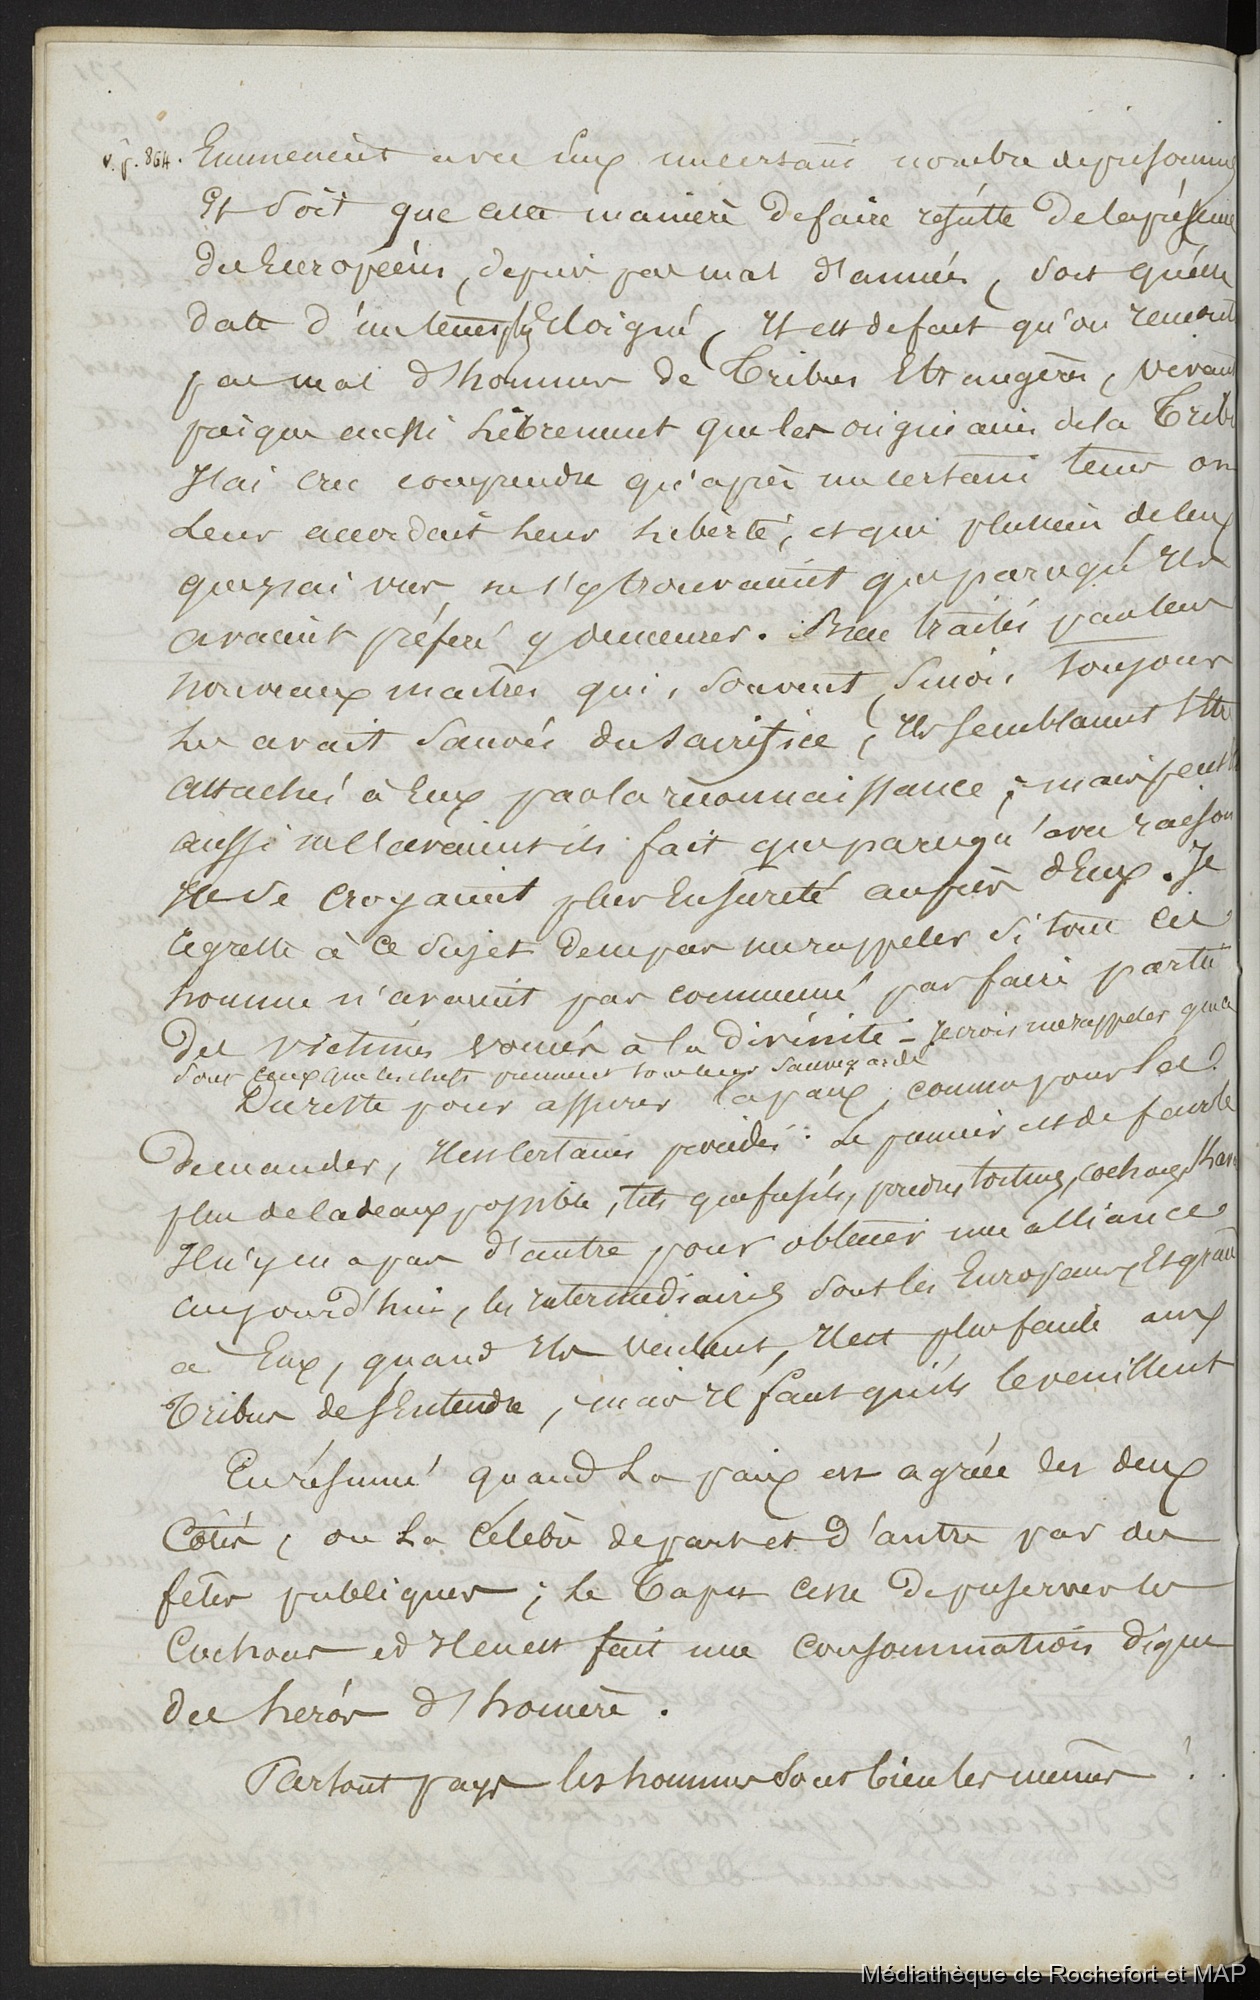 v. p. 864. Emmenent avec Eux un certain nombre de prisonniers
Et soit que cette manière de faire résulte de la présence
des Européens, depuis pas mal d'années, soit qu'elle
date d'un tems plus Eloigné, Il est de fait qu'on rencontre
pas mal d'hommes de Tribus Etrangères, vivant
presque aussi Librement que les originaires de la Tribu
J'ai cru comprendre qu'après un certain tems on
Leur accordait leur Liberté, et que plusieurs de ceux
que j'ai vus, ne s'y trouvaient que parcequ'Ils
avaient préféré y demeurer. Bien traités par leurs
nouveaux maitres qui, souvent, sinon toujours
les avait sauvés du sacrifice, Ils semblaient s'être
attachés à Eux par la reconnaissance; mais peut être
aussi ne l'avaient ils fait que parcequ'avec raison
Ils se croyaient plus En sureté auprès d'Eux. Je
regrette à ce sujet de ne pas me rappeler si tous ces
hommes n'avaient pas commencé par faire partie
des victimes vouées à la divinité – Je crois me rappeler que ce
sont ceux que les chefs prennent sous leur sauvegarde
Du reste pour assurer la paix, comme pour la
demander, Il est certains procédés: Le premier est de faire le
plus de cadeaux possible, tels que fusils, poudre, tortues, cochons,
Il n'y en a pas d'autre pour obtenir une alliance
aujourd'hui, les Intermédiaires sont les Européens, Et grâce
a Eux, quand Ils veulent, Il est plus facile aux
Tribus de s'Entendre, mais Il faut qu'ils le veuillent
En résumé quand La paix est agréée des deux
Côtés, on La célèbre de part et d'autre par des
fêtes publiques; le Tapu cesse de préserver les
Cochons et Il en est fait une consommation digne
des héros d'homère.
Partout pays les hommes sont bien les mêmes!
Médiathèque de Rochefort et MAP